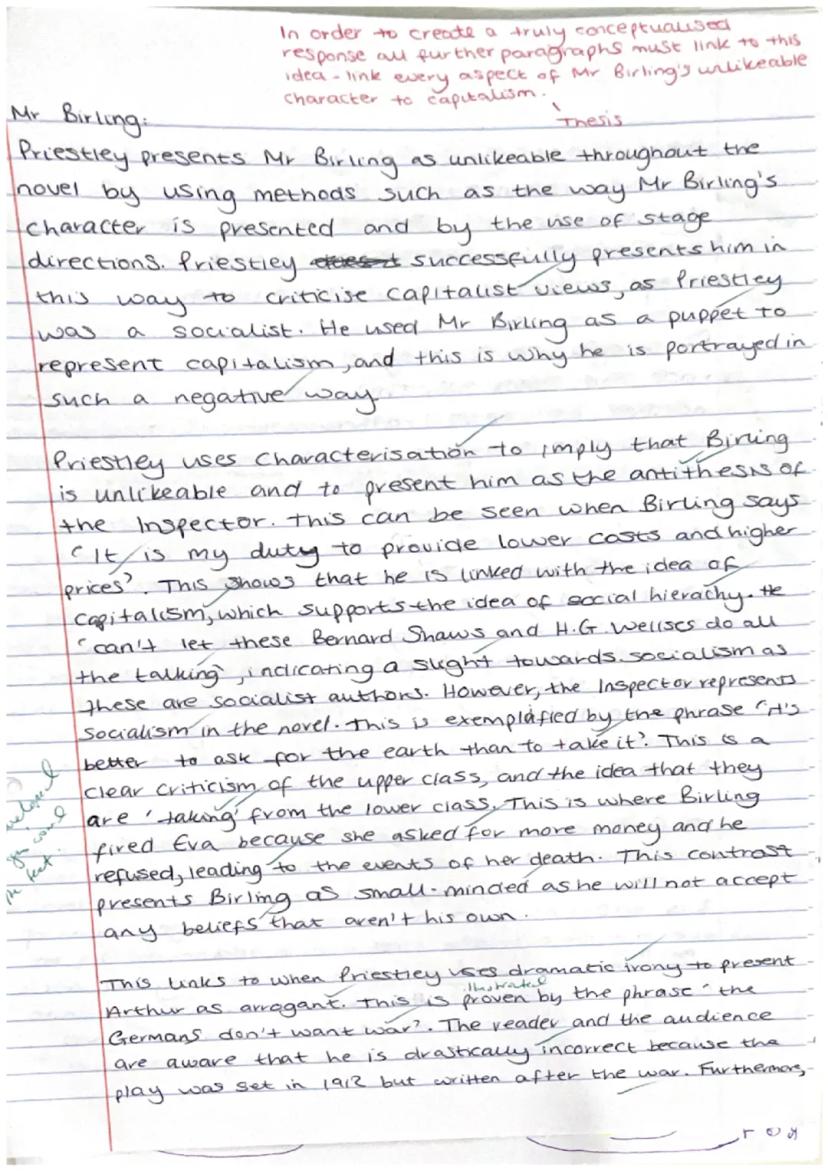 In order to create a truly conceptualised
response all further paragraphs must link to this
idea - link every aspect of Mr Birling's unlikeable
character to capitalism.
Thesis
Mr Birling:
Priestley presents Mr Birling as unlikeable throughout the
novel by using methods such as the way Mr Birling's
character is presented and by the use of stage
directions. Priestley successfully presents him in
this way to criticise capitalist views, as Priestley
was a socialist. He used Mr Birling as a puppet to
represent capitalism, and this is why he is portrayed in
such a negative way.
Priestley uses characterisation to imply that Birling
is unlikeable and to present him as the antithesis of
the Inspector. This can be seen when Birling says
'It is my duty to provide lower costs and higher
prices'. This shows that he is linked with the idea of
capitalism, which supports the idea of social hierachy. He
'can't let these Bernard Shaws and H.G. Wellses do all
the talking', indicating a slight towards socialism as
these are socialist authors. However, the Inspector represents
socialism in the novel. This is exemplified by the phrase 'it's
better to ask for the earth than to take it'. This is a
clear criticism of the upper class, and the idea that they
are 'taking' from the lower class. This is where Birling
fired Eva because she asked for more money and he
refused, leading to the events of her death. This contrast
presents Birling as small-minded as he will not accept
any beliefs that aren't his own.
This links to when Priestley uses dramatic irony to present
illustrated
Arthur as arrogant. This is proven by the phrase 'the
Germans don't want war'. The reader and the audience
are aware that he is drastically incorrect because the
play was set in 1912 but written after the war. Furthermore,